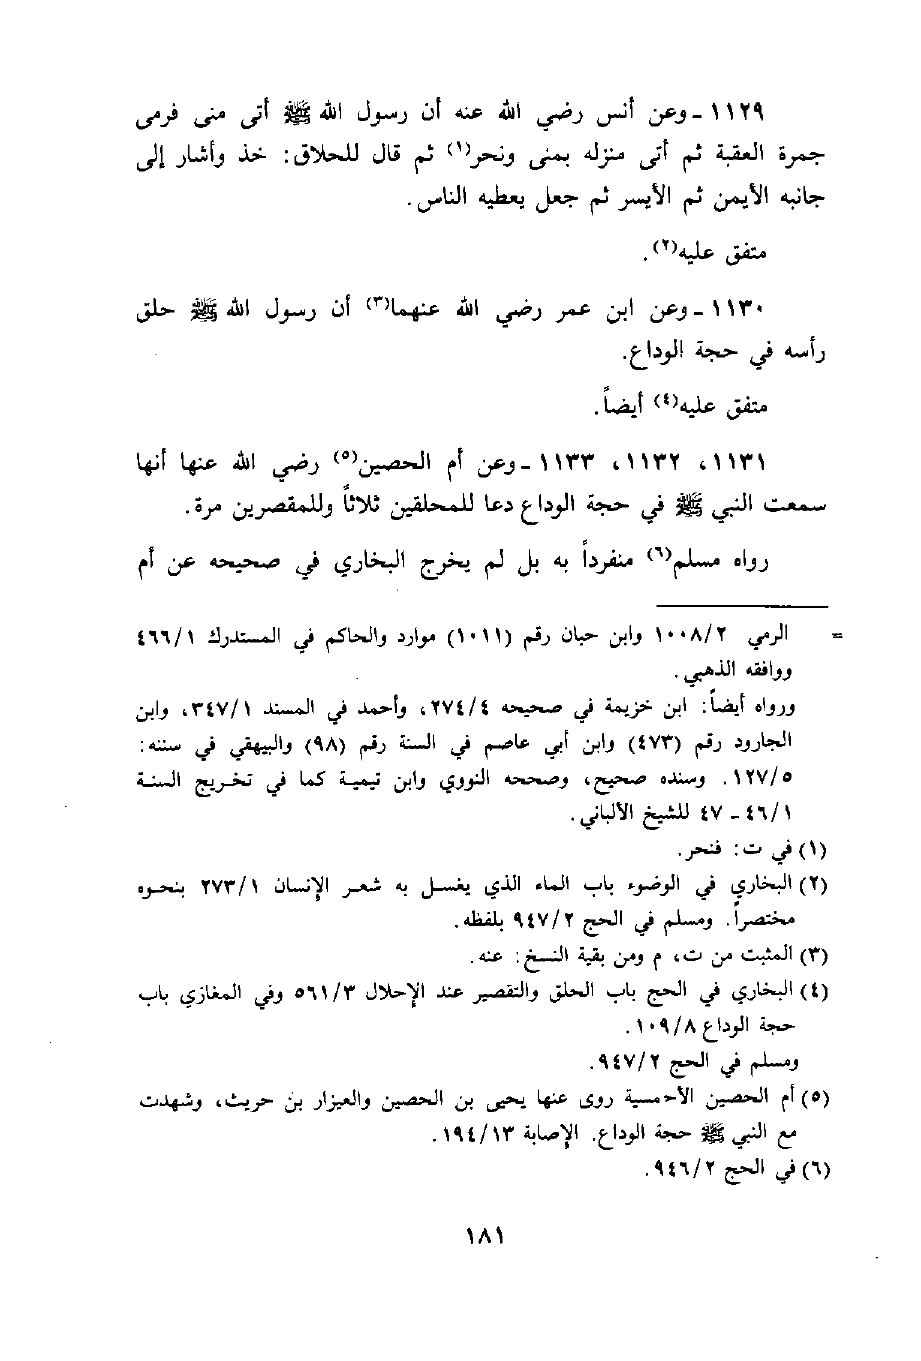 ١١٢٩ - وعن أنس رضي الله عنه أن رسول الله ﷺ أتى منى فرمى
جمرة العقبة ثم أتى منزله بمنى ونحر(١) ثم قال للحلاق: خذ وأشار إلى
جانبه الأيمن ثم الأيسر ثم جعل يعطيه الناس.
متفق عليه(٢).
١١٣٠ - وعن ابن عمر رضي الله عنهما(٣) أن رسول الله ﷺ حلق
رأسه في حجة الوداع.
متفق عليه(٤) أيضاً.
١١٣١، ١١٣٢، ١١٣٣ - وعن أم الحصين(٥) رضي الله عنها أنها
سمعت النبي ﷺ في حجة الوداع دعا للمحلقين ثلاثاً وللمقصرين مرة.
رواه مسلم(٦) منفرداً به بل لم يخرج البخاري في صحيحه عن أم
= الرمي ١٠٠٨/٢ وابن حبان رقم (١٠١١) موارد والحاكم في المستدرك ٤٦٦/١
ووافقه الذهبي.
ورواه أيضاً: ابن خزيمة في صحيحه ٢٧٤/٤، وأحمد في المسند ٣٤٧/١، وابن
الجارود رقم (٤٧٣) وابن أبي عاصم في السنة رقم (٩٨) والبيهقي في سننه:
١٢٧/٥. وسنده صحيح، وصححه النووي وابن تيمية كما في تخريج السنة
٤٦/١ - ٤٧ للشيخ الألباني.
(١) في ت: فنحر.
(٢) البخاري في الوضوء باب الماء الذي يغسل به شعر الإنسان ٢٧٣/١ بنحوه
مختصراً. ومسلم في الحج ٩٤٧/٢ بلفظه.
(٣) المثبت من ت، م ومن بقية النسخ: عنه.
(٤) البخاري في الحج باب الحلق والتقصير عند الإحلال ٥٦١/٣ وفي المغازي باب
حجة الوداع ١٠٩/٨.
ومسلم في الحج ٩٤٧/٢.
(٥) أم الحصين الأحمسية روى عنها يحيى بن الحصين والعيزار بن حريث، وشهدت
مع النبي ﷺ حجة الوداع. الإصابة ١٩٤/١٣.
(٦) في الحج ٩٤٦/٢.
١٨١